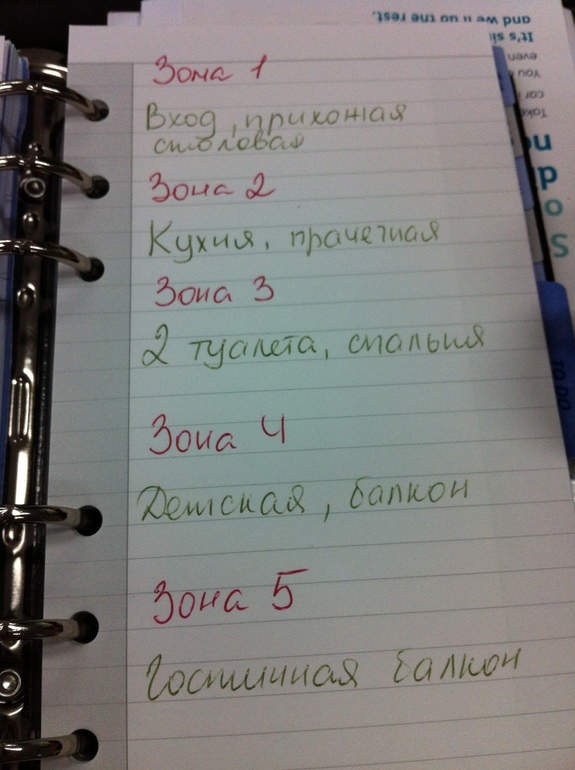 Зона 1
Вход, прихожая
столовая
Зона 2
Кухня, прачечная
Зона 3
2 туалета, спальня
Зона 4
Детская, балкон
Зона 5
Гостинная балкон
and we'll do the rest.
It's si
even
You
cor
Take